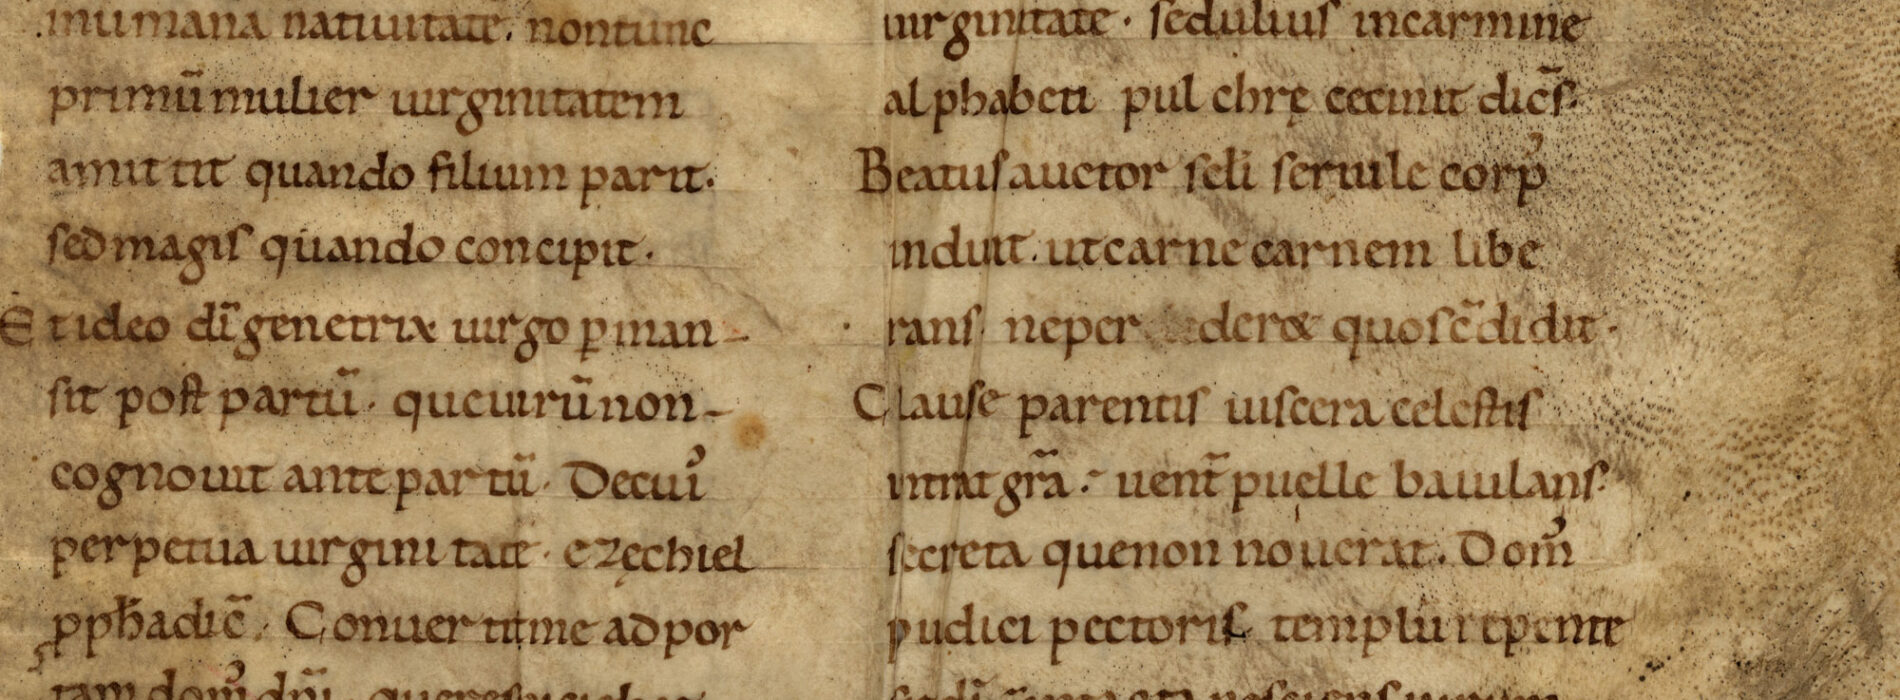 inumana natiuitate. nontunc
primū mulier uirginitatem
amittit quando filium parit.
sed magis quando concipit.
Et ideo dī genetrix uirgo ꝑman-
sit post partū. que uirū non-
cognouit ante partū. De cuiꝰ
perpetua uirginitate. ezęchiel
ppħa dic̄. Conuertit me ad por
tam domꝰ dn̄i
uirginitate. sedulius incarmine
alphabeti pulchrę cecinit dic̄s.
Beatus auctor scłi seruile corpꝰ
induit. ut carne carnem libe
rans. ne perderet quos c̄didit.
Clause parentis uiscera celestis
intrat gr̄a. uent̄ puelle baiulans.
secreta que non nouerat. Domꝰ
pudici pectoris templū repente